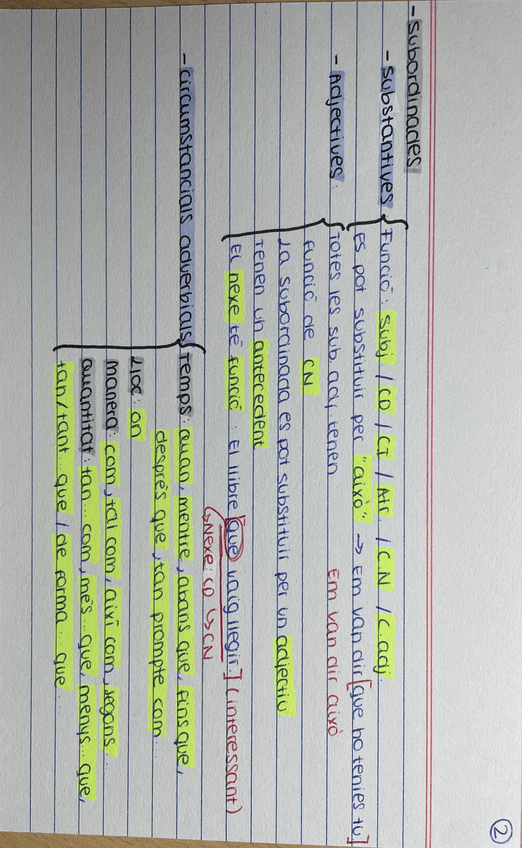 ②
- Subordinades
- Substantives { Funció: Subj / CD / CI / Atr / C.N / C.adj.
Es pot substituir per "això" → Em van dir [que ho tenies tu]
Em van dir això
- Adjectives: { Totes les sub adj tenen
funció de CN
La subordinada es pot substituir per un adjectiu
Tenen un antecedent
El nexe té funció: El llibre [que vaig llegir] (interessant)
↳ Nexe: CD ↳ CN
- Circumstancials adverbials { Temps: quan, mentre, abans que, fins que,
després que, tan prompte com
Lloc: on
manera: com, tal com, així com, segons
quantitat: tan... com, més... que, menys... que,
tan/tant... que / de forma... que